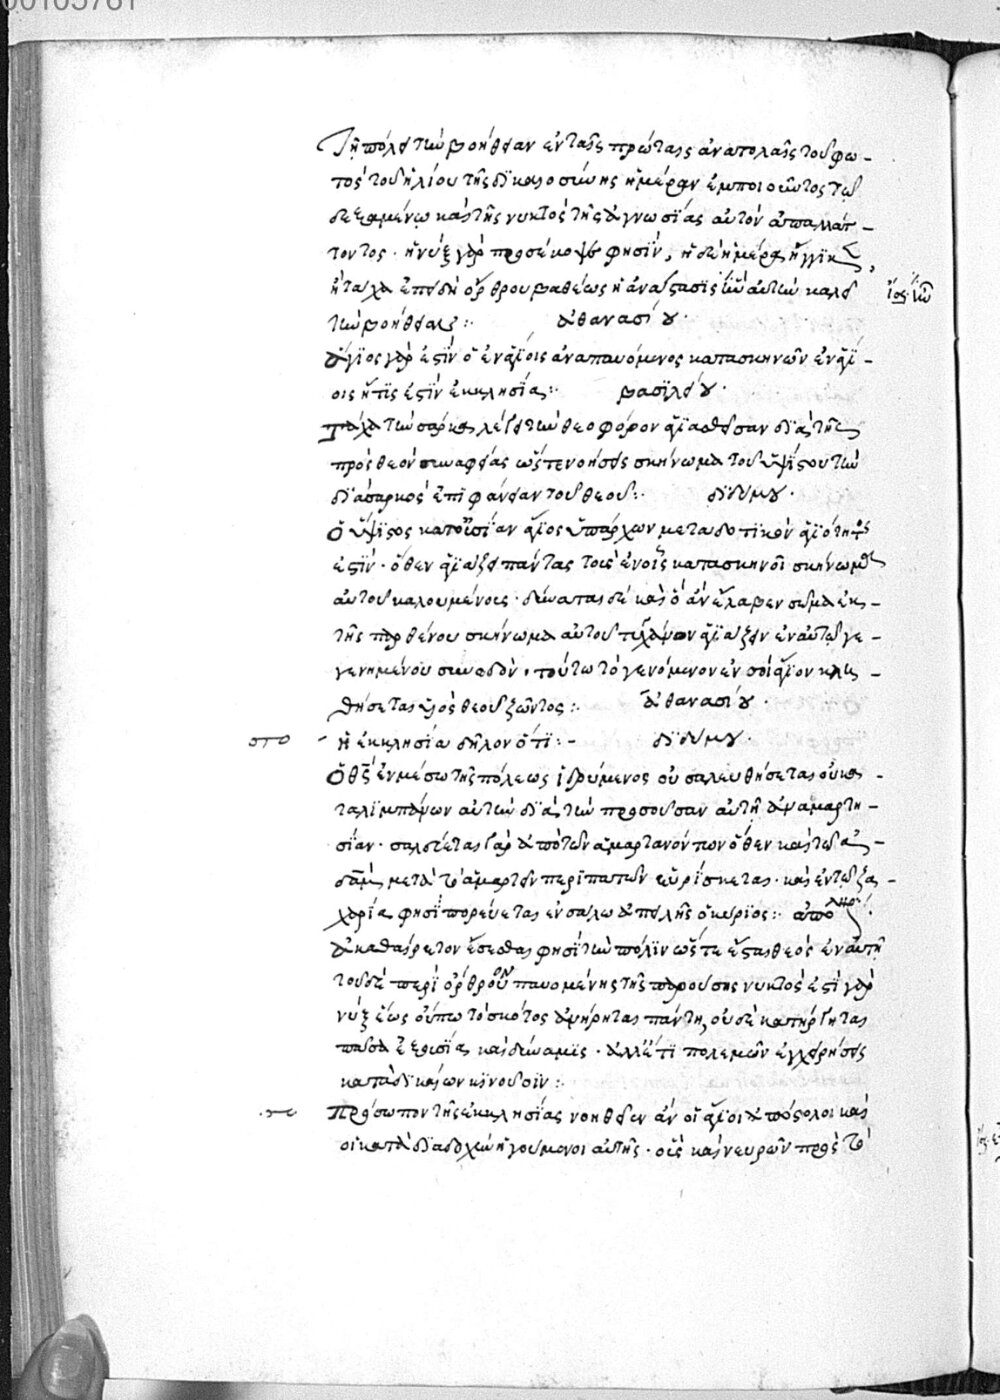 Τῇ πόλει τὴν βοήθειαν ἐν ταῖς πρώταις ἀνατολαῖς τοῦ φω-
τὸς τοῦ ἡλίου τῆς δικαιοσύνης ἡμέραν ἐμποιοῦντος τῷ
δεξαμένῳ καὶ τῆς νυκτὸς τῆς ἀγνωσίας αὐτὸν ἀπαλλάτ-
τοντος· ἡ νὺξ γὰρ προσέκοψε φησὶν, ἡ δὲ ἡμέρα ἤγγικε,
ἢ τάχα ἐπειδὴ ὄρθρου βαθέως ἡ ἀνάστασις αὐτὴν καλεῖ
τὴν βοήθειαν:· ἀθανασίου·
ἅγιος γάρ ἐστιν ὁ ἐν ἁγίοις ἀναπαυόμενος κατασκηνῶν ἐν ἁγί-
οις ἥτις ἐστὶν ἐκκλησία:· βασιλείου·
Τάχα τὴν σάρκα λέγει τὴν θεοφόρον ἁγιασθεῖσαν διὰ τῆς
πρὸς θεὸν συναφείας ὥστε νοῆσαι σκήνωμα τοῦ ὑψίστου τὴν
διὰ σαρκὸς ἐπιφάνειαν τοῦ θεοῦ:· διδύμου·
Ὁ ὕψιστος κατ' οὐσίαν ἅγιος ὑπάρχων μεταδοτικὸν ἁγιότητος
ἐστίν· ὅθεν ἁγιάζει πάντας τοὺς ἐν οἷς κατασκηνοῖ σκήνωμα
αὐτοῦ καλουμένοις· δύναται δὲ καὶ ὃ ἀνέλαβεν σῶμα ἐκ
τῆς παρθένου σκήνωμα αὐτοῦ τυγχάνων ἁγιάζειν ἐν αὐτῷ γε-
γενημένου συνᾴδον· τούτω τὸ γενόμενον ἐν σοὶ ἅγιον κλη-
θήσεται υἱὸς θεοῦ ζῶντος:· ἀθανασίου·
Ἡ ἐκκλησία δῆλον ὅτι:- διδύμου·
Ὁ θεὸς ἐν μέσω τῆς πόλεως ἱδρύμενος οὐ σαλευθήσεται οὐ κα-
ταλιμπάνων αὐτὴν διὰ τὴν προσοῦσαν αὐτῇ ἀναμαρτη-
σίαν· σαλεύεται γὰρ ἀπὸ τῶν ἁμαρτανόντων ὅθεν καὶ τῷ ἀ-
δὰμ μετὰ τὸ ἁμαρτεῖν περιπατῶν εὑρίσκεται· καὶ ἐν τῷ ζα-
χαρία φησὶ πορεύεται ἐν σάλω ἀπειλῆς ὁ κύριος:·
ἀκαθαίρετον ἔσεσθαι φησὶ τὴν πόλιν ὥστε ἔσται θεὸς ἐν αὐτῇ
τοῦδε περὶ ὄρθρον παυομένης τῆς παρούσης νυκτὸς ἐστὶ γὰρ
νὺξ ἕως οὔπω τὸ σκότος ἀνήρηται πάντη, οὐδὲ κατήργηται
πᾶσα ἐξουσία καὶ δύναμις· ἀλλ' ἔτι πολεμῶν ἐγχειρήσεις
κατὰ δικαίων κινοῦσιν:·
Πρόσωπον τῆς ἐκκλησίας νοηθεῖεν ἂν οἱ ἅγιοι ἀπόστολοι καὶ
οἱ κατὰ διαδοχὴν ἡγούμενοι αὐτῆς· οἷς καὶ νευρῶν πρὸς τὸ